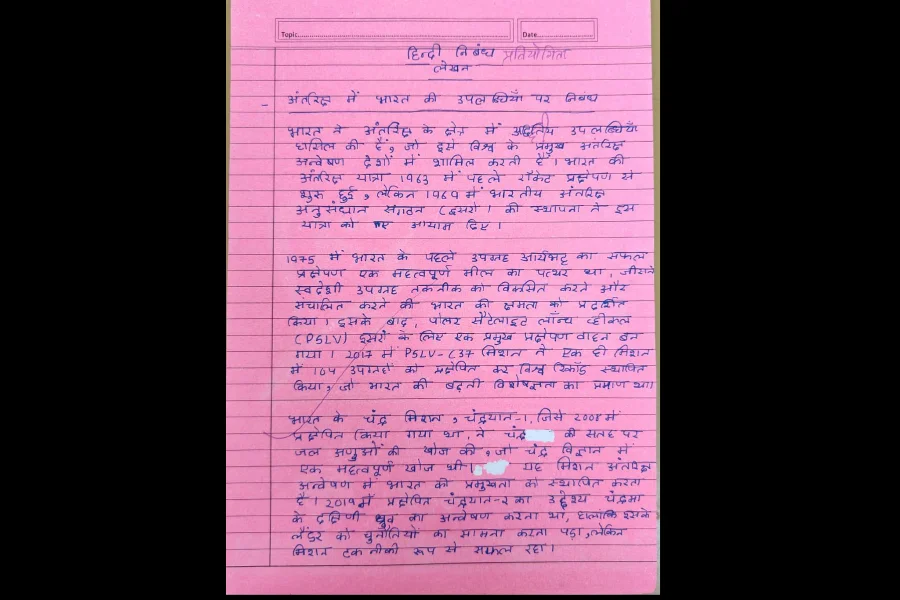 Topic
Date
हिन्दी निबंध प्रतियोगिता
लेखन
- अंतरिक्ष में भारत की उपलब्धियाँ पर निबंध
भारत ने अंतरिक्ष के क्षेत्र में अद्वितीय उपलब्धियाँ
हासिल की हैं, जो इसे विश्व के प्रमुख अंतरिक्ष
अन्वेषण देशों में शामिल करती है। भारत की
अंतरिक्ष यात्रा 1963 में पहले रॉकेट प्रक्षेपण से
शुरू हुई, लेकिन 1969 में भारतीय अंतरिक्ष
अनुसंधान संगठन (इसरो। की स्थापना ने इस
यात्रा को नए आयाम दिए।
1975 में भारत के पहले उपग्रह आर्यभट्ट का सफल
प्रक्षेपण एक महत्वपूर्ण मील का पत्थर था, जिसने
स्वदेशी उपग्रह तकनीक को विकसित करने और
संचालित करने की भारत की क्षमता को प्रदर्शित
किया। इसके बाद, पोलर सैटेलाइट लॉन्च व्हीकल
(PSLV) इसरो के लिए एक प्रमुख प्रक्षेपण वाहन बन
गया। 2017 में PSLV-C37 मिशन ने एक ही मिशन
में 104 उपग्रहों को प्रक्षेपित कर विश्व रिकॉर्ड स्थापित
किया, जो भारत की बढ़ती विशेषज्ञता का प्रमाण था।
भारत के चंद्र मिशन, चंद्रयान-1, जिसे 2008 में
प्रक्षेपित किया गया था, ने चंद्र की सतह पर
जल अणुओं की खोज की, जो चंद्र विज्ञान में
एक महत्वपूर्ण खोज थी। यह मिशन अंतरिक्ष
अन्वेषण में भारत की प्रमुखता को स्थापित करता
है। 2019 में प्रक्षेपित चंद्रयान-2 का उद्देश्य चंद्रमा
के दक्षिणी ध्रुव का अन्वेषण करना था, हालांकि इसके
लैंडर को चुनौतियों का सामना करना पड़ा, लेकिन
मिशन तकनीकी रूप से सफल रहा।